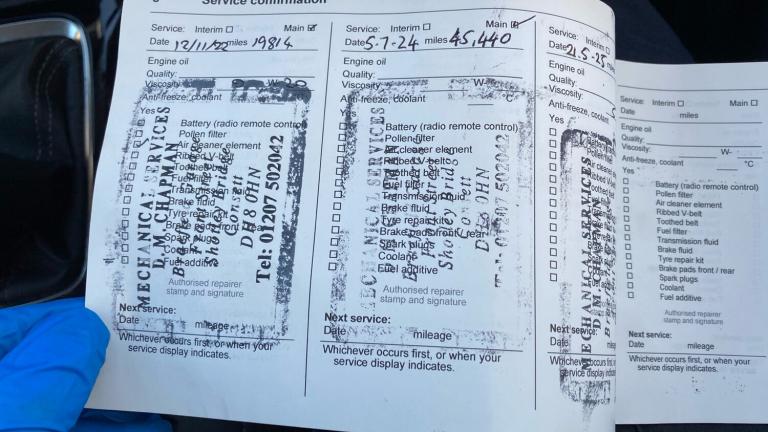 Service confirmation
Service: Interim ☐ Main ☑
Date 12/11/22 miles 19814
Engine oil
Quality:
Viscosity W-
Anti-freeze, coolant
Yes
Battery (radio remote control)
Pollen filter
Air cleaner element
Ribbed V-belt
Toothed belt
Fuel filter
Transmission fluid
Brake fluid
Tyre repair kit
Brake pads front / rear
Spark plugs
Coolant
Fuel additive
MECHANICAL SERVICES
D.M. CHAPMAN
DH8 0HN
Tel: 01207 502042
Authorised repairer
stamp and signature
Next service:
Date mileage
Whichever occurs first, or when your
service display indicates.
Service: Interim ☐ Main ☑
Date 5-7-24 miles 45,440
Engine oil
Quality:
Viscosity W-
Anti-freeze, coolant °C
Yes
Battery (radio remote control)
Pollen filter
Air cleaner element
Ribbed V-belt
Toothed belt
Fuel filter
Transmission fluid
Brake fluid
Tyre repair kit
Brake pads front / rear
Spark plugs
Coolant
Fuel additive
MECHANICAL SERVICES
Shotley Bridge
Consett
DH8 0HN
Tel: 01207 502042
Authorised repairer
stamp and signature
Next service:
Date mileage
Whichever occurs first, or when your
service display indicates.
Service: Interim
Date 21.5-25
Engine oil
Quality:
Viscosity:
Anti-freeze, coolant
Yes
MECHANICAL SERVICES
D.M. CHAPMAN
Next service:
Date
Whichever occurs
service display indicates.
Service: Interim ☐ Main ☐
Date miles
Engine oil
Quality:
Viscosity W-
Anti-freeze, coolant °C
Yes
Battery (radio remote control)
Pollen filter
Air cleaner element
Ribbed V-belt
Toothed belt
Fuel filter
Transmission fluid
Brake fluid
Tyre repair kit
Brake pads front / rear
Spark plugs
Coolant
Fuel additive
Authorised repairer
stamp and signature
Next service:
Date mileage
Whichever occurs first, or when your
service display indicates.